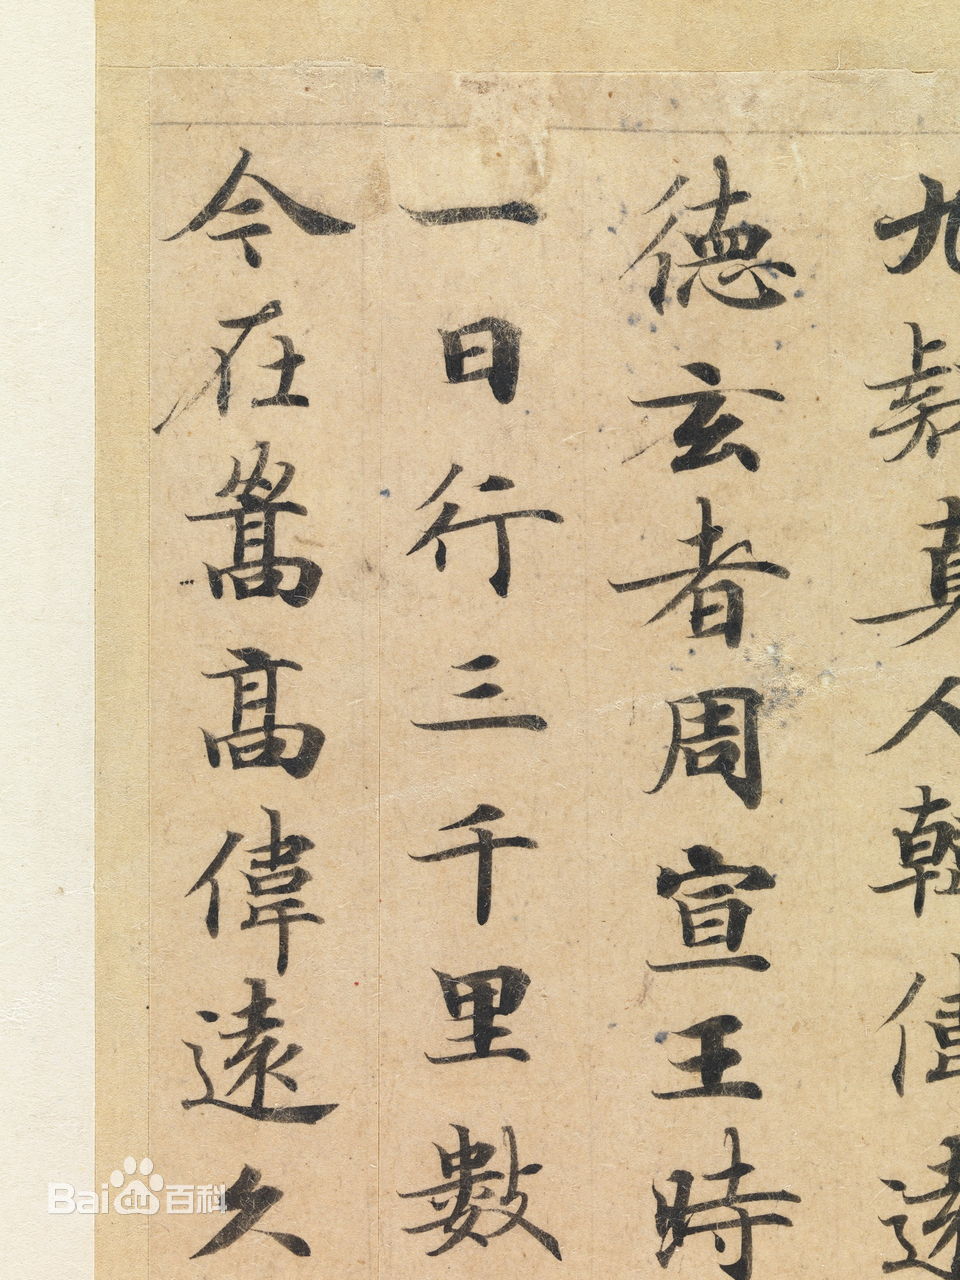 九疑真人韓偉遠
德玄者周宣王時
一日行三千里數
今在嵩高偉遠久
Bai百科